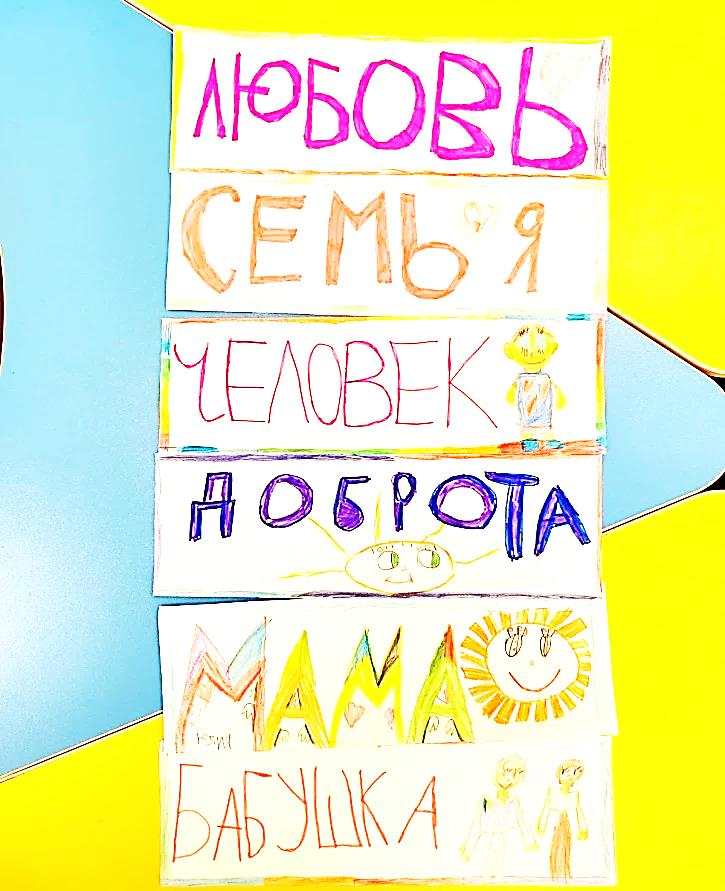 ЛЮБОВЬ
СЕМЬЯ
ЧЕЛОВЕК
ДОБРОТА
МАМА
БАБУШКА